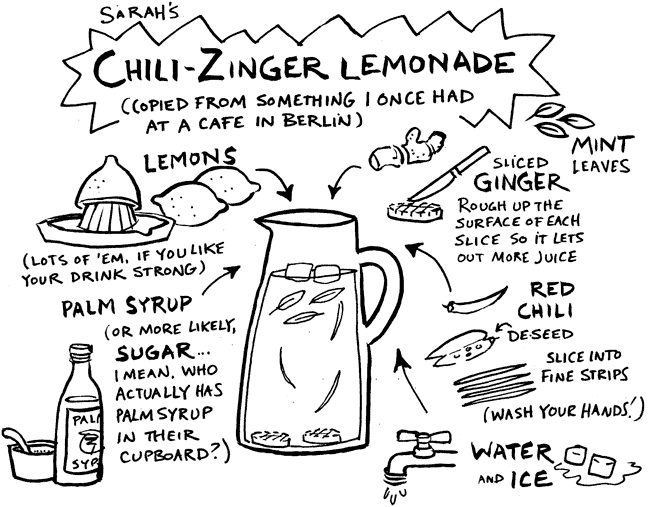 SARAH'S
CHILI-ZINGER LEMONADE
(COPIED FROM SOMETHING I ONCE HAD
AT A CAFE IN BERLIN)
LEMONS
(LOTS OF 'EM, IF YOU LIKE
YOUR DRINK STRONG)
PALM SYRUP
(OR MORE LIKELY,
SUGAR...
I MEAN, WHO
ACTUALLY HAS
PALM SYRUP
IN THEIR
CUPBOARD?)
PALM
SYP
MINT
LEAVES
SLICED
GINGER
ROUGH UP THE
SURFACE OF EACH
SLICE SO IT LETS
OUT MORE JUICE
RED
CHILI
DE-SEED
SLICE INTO
FINE STRIPS
(WASH YOUR HANDS!)
WATER
AND ICE